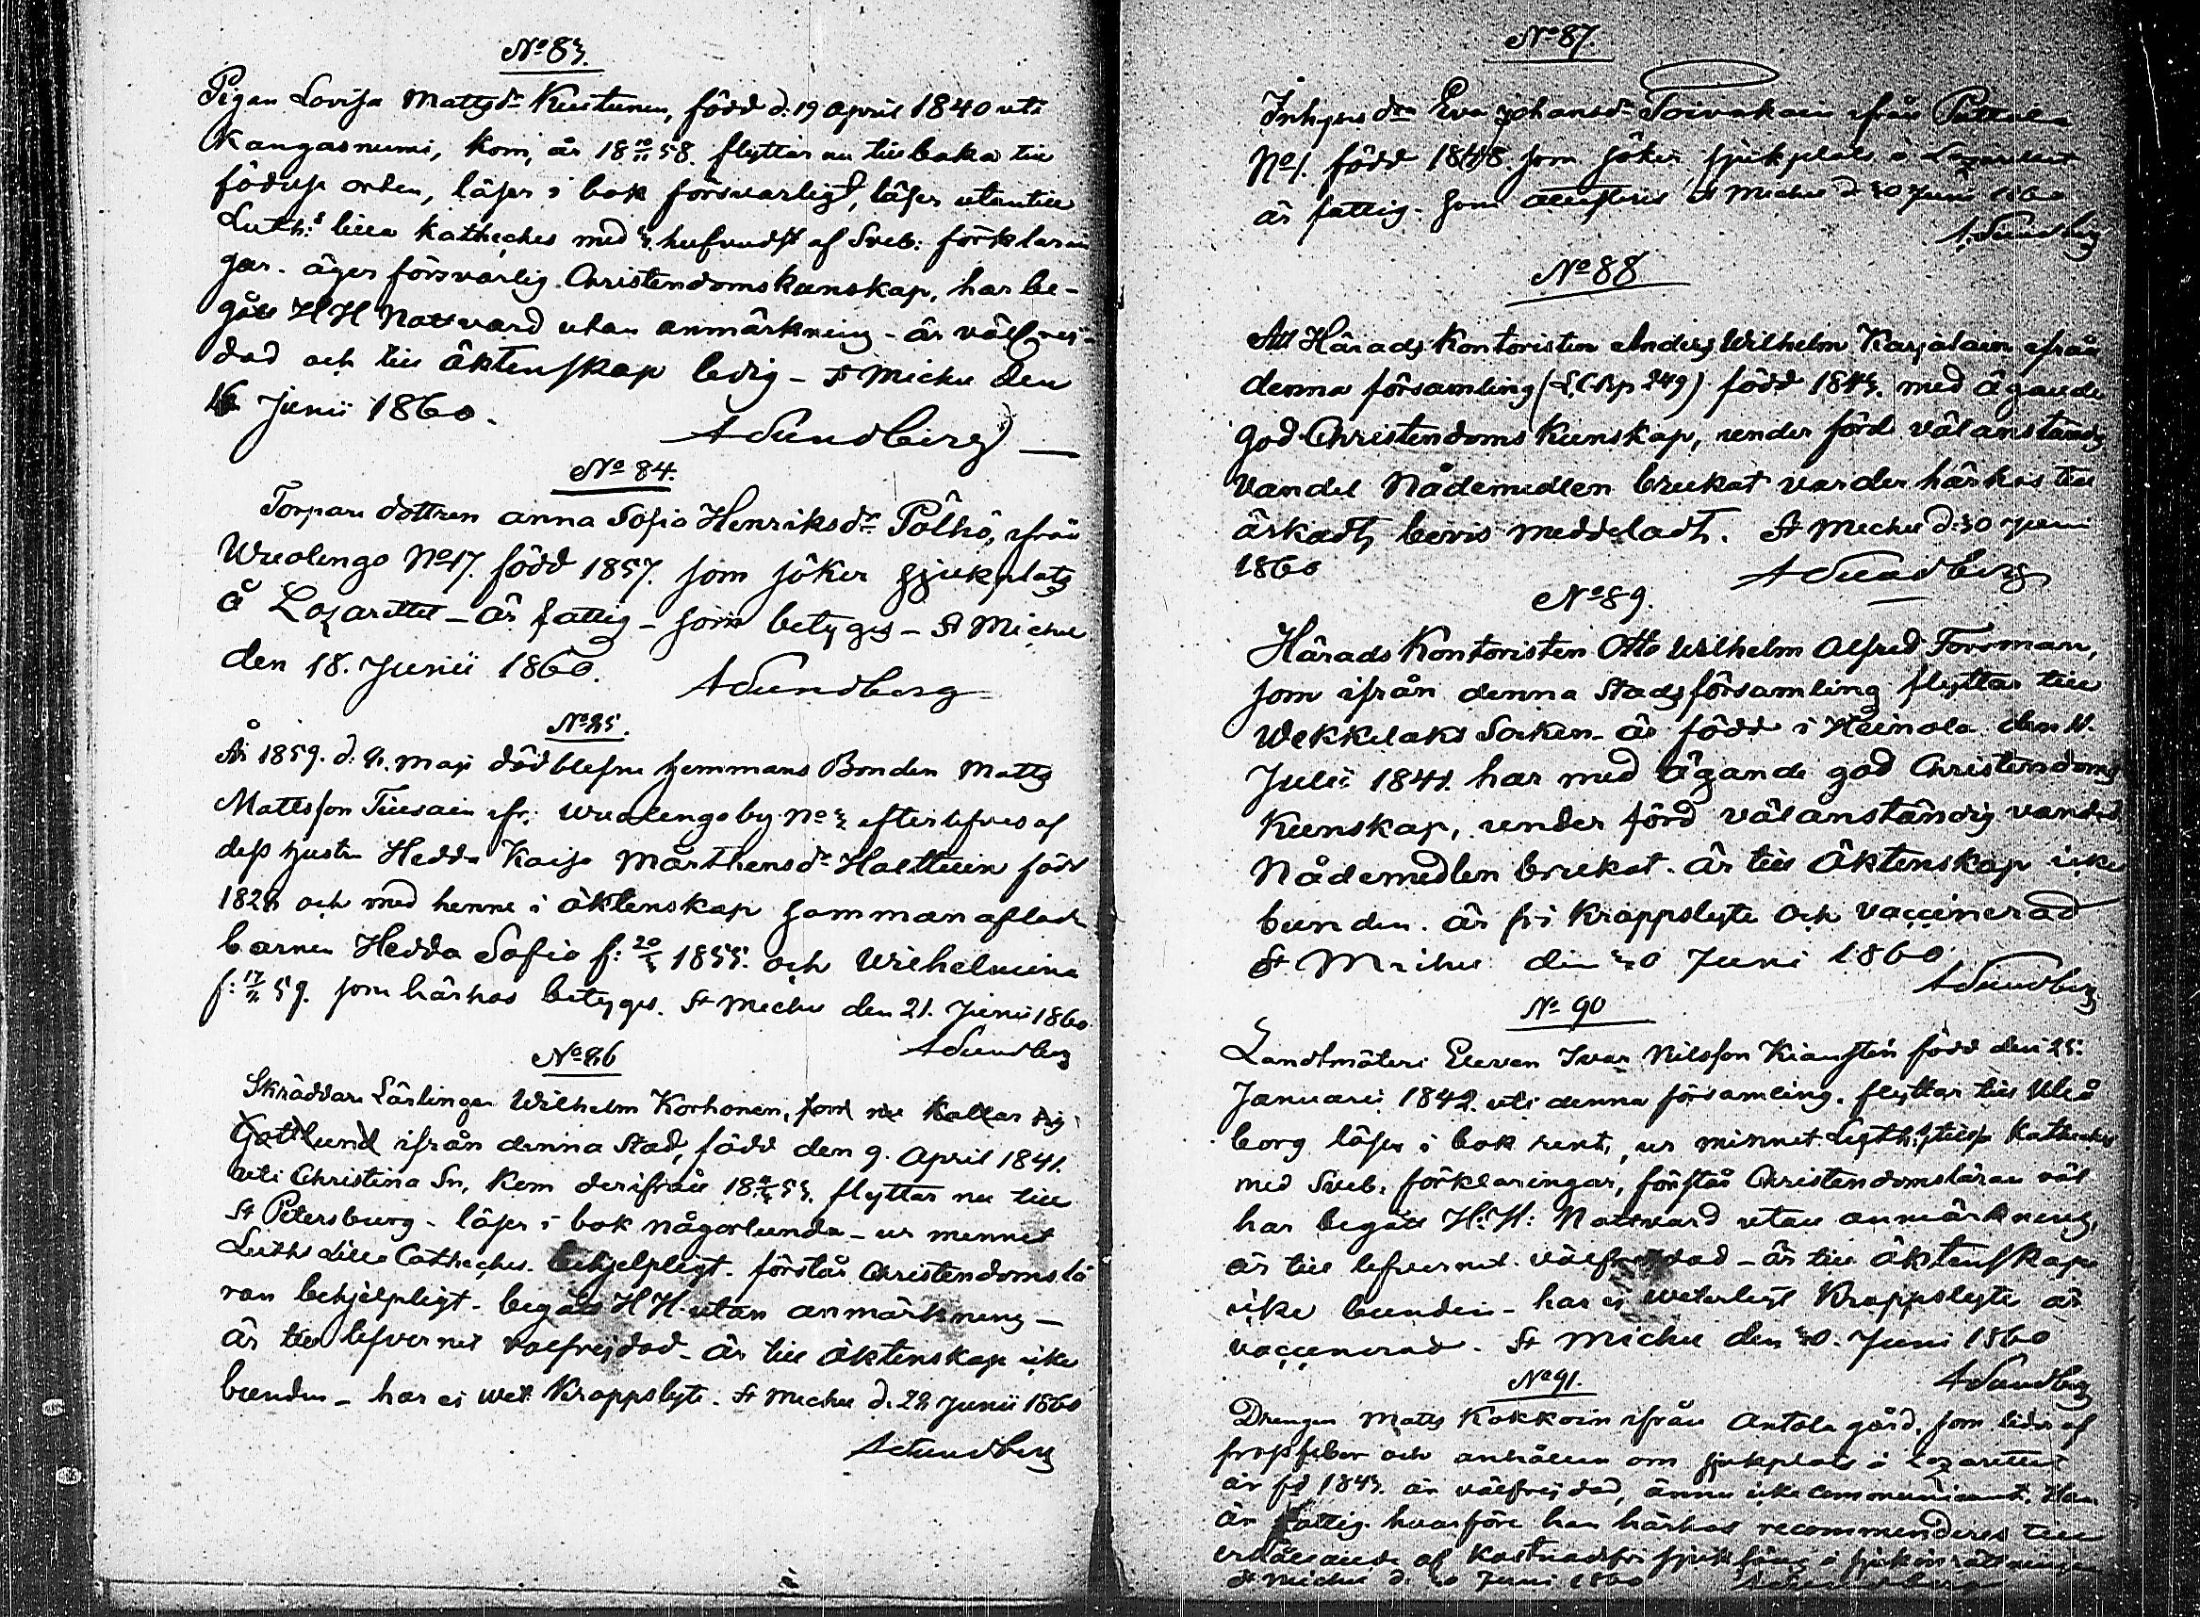 No 83.
Pigan Lovisa Mattsdr Kustunen, född d. 19 April 1840 uti
Kangasnemi, kom, år 18 10/11 58. flyttar nu tillbaka till
födelse orten, läser i bok försvarligt, läser utantill
Luth:s lilla katheches med 3 hufvudst af Sveb: förklarin
gar. äger försvarlig Christendomskunskap, har be-
gått H H Nattvard utan anmärkning - är välfrej-
dad och till äktenskap ledig - St Michel den
Junii 1860.
A Sundberg
No 84.
Torpare dottren Anna Sofia Henriksdr Pölhö, ifrån
Wuolingo No 17. född 1857. som söker sjukplats
å Lazarettet - är fattig - som betyges - St Michel
den 18. Junii 1860.
A Sundberg
No 85.
År 1859. d. 4. Maji dödblefne hemmans Bonden Matts
Mattsson Tiusain ifr. Wuolingo by No 3 efterlefves af
dess hustru Hedda Kaisa Mårthensdr Halttuin född
1828 och med henne i äktenskap sammanaflade
barnen Hedda Sofia f: 20/3 1855. och Wilhelmina
f: 17/2 59. som härhos betyges. St Michel den 21. Junii 1860
A Sundberg
No 86
Skräddare Lärlingen Wilhelm Korhonen, som nu kallar sig
Gottlund ifrån denna Stad, född den 9. April 1841.
uti Christina Sn, kom derifrån 18 53. flyttar nu till
St Petersburg - läser i bok någorlunda - ur minnet
Luths Lilla Catheches behjelpligt. förstår Christendomslä
ran behjelpligt - begått H H utan anmärkning -
är till lefvernet välfrejdad - är till äktenskap icke
bunden - har ej wet. Kroppslyte. St Michel d. 22 Junii 1860
A Sundberg
No 87.
Inhyses dtn Eva Johansdr Toivakain ifrån Puttala
No 1. född 1848. som söker sjukplats å Lazarettet
är fattig. som attesteras St Michel d. 30 Juni 1860
A. Sundberg
No 88
Att Härads Kontoristen Anders Wilhelm Karjalain ifrån
denna församling (L.C.B.p 249) född 1843. med ägande
god Christendoms kunskap, under förd välanständig
vandel Nådemedlen brukat varder härhos till
äskadt, bevis meddeladt. St Michel d. 30 Juni
1860
A Sundberg
No 89.
Härads Kontoristen Otto Wilhelm Alfred Forsman,
som ifrån denna Stadsförsamling flyttar till
Wekkelaks Socken - är född i Heinola den 11.
Julii 1841. har med ägande god Christendoms
Kunskap, under förd välanständig vandel
Nådemedlen brukat. är till Äktenskap icke
bunden. är fri Kroppslyte och vaccinerad
St Michel den 30 Juni 1860.
A Sundberg
No 90
Landtmäteri Eleven Ivar Nilsson Kiansten född den 25.
Januarii 1842. uti denna församling. flyttar till Uleå
borg läser i bok rent, ur minnet Luth: Katheches
med Sveb. förklaringar, förstår Christendomsläran väl
har begått H: H: Nattvard utan anmärkning,
är till lefvernet välfrejdad - är till äktenskap
icke bunden - har ej weterligt Kroppslyte är
vaccinerad. St Michel den 30. Juni 1860
A Sundberg
No 91.
Drengen Matts Kokkoin ifrån Antola gård, som lider af
frossfeber och anhåller om sjukplats å lazarettet
är fd 1843. är välfrejdad, ännu icke communicant. Han
är fattig. hvarföre han härhos recommenderas till
erhållande af kostnadsfri sjuksäng å sjukinrättningen
St Michel d. 30 Juni 1860 A Sundberg